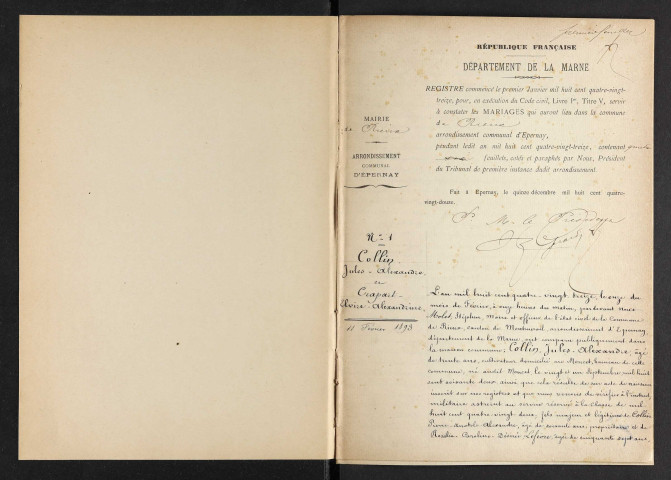 première feuille
RÉPUBLIQUE FRANÇAISE
DÉPARTEMENT DE LA MARNE
REGISTRE commencé le premier Janvier mil huit cent quatre-vingt-
treize, pour, en exécution du Code civil, Livre Ier, Titre V, servir
à constater les MARIAGES qui auront lieu dans la commune
de Rieux
arrondissement communal d'Épernay,
pendant ledit an mil huit cent quatre-vingt-treize, contenant
feuillets, cotés et paraphés par Nous, Président
du Tribunal de première instance dudit arrondissement.
Fait à Épernay, le quinze décembre mil huit cent quatre-
vingt-douze.
P. Mr le Président
MAIRIE
de Rieux
ARRONDISSEMENT
COMMUNAL
D'ÉPERNAY
No 1
Collin
Jules-Alexandre
et
Crapart
Elvire-Alexandrine
11 Février 1893
L'an mil huit cent quatre-vingt treize, le onze du
mois de Février, à onze heures du matin, pardevant nous
Molot, Stéphen, Maire et officier de l'état civil de la Commune
de Rieux, canton de Montmirail, arrondissement d'Epernay,
département de la Marne, ont comparu publiquement dans
la maison commune, Collin, Jules-Alexandre, âgé
de trente ans, cultivateur, domicilié au Moncet, hameau de cette
commune, né audit Moncet le vingt et un Septembre mil huit
cent soixante deux, ainsi que cela résulte de son acte de naissance
inscrit sur nos registres et que nous venons de vérifier à l'instant,
militaire astreint au service réservé à la classe de mil
huit cent quatre-vingt-deux, fils majeur et légitime de Collin
Pierre-Anatole-Alexandre, âgé de soixante ans, propriétaire et de
Rosalie-Caroline-Désirée Lefèvre, âgée de cinquante sept ans,